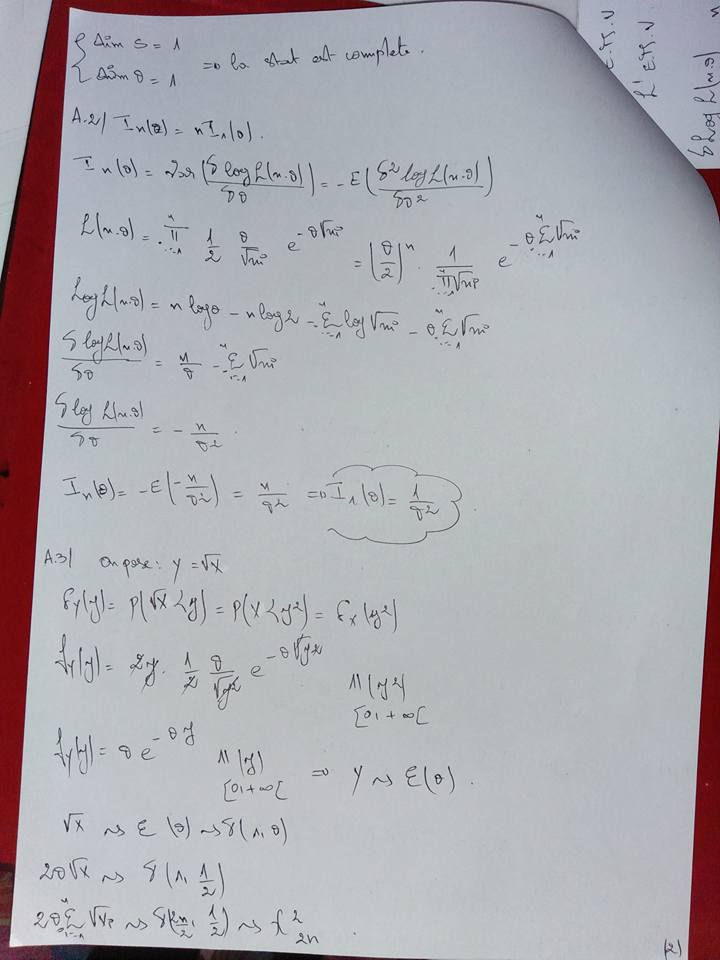 { dim S = 1
{ dim θ = 1 => la stat est complete.
A.2/ In(θ) = nI1(θ).
In(θ) = Var(δ log L(x.θ)/δθ) = -E(δ² log L(x.θ)/δθ²)
L(x.θ) = ∏_{i=1}^{n} 1/2 θ/√xi e^{-θ√xi} = (θ/2)^n . 1/∏_{i=1}^{n}√xi e^{-θ∑_{i=1}^{n}√xi}
Log L(x.θ) = n logθ - n log2 - ∑_{i=1}^{n} log√xi - θ∑_{i=1}^{n}√xi
δ log L(x.θ)/δθ = n/θ - ∑_{i=1}^{n}√xi
δ log L(x.θ)/δθ = - n/θ² .
In(θ) = -E(-n/θ²) = n/θ² => I1(θ) = 1/θ² .
A.3/ on pose : Y = √X
FY(y) = P(√X < y) = P(X < y²) = FX(y²)
fY(y) = 2y . 1/2 θ/√y² e^{-θ√y²} 11(y²) [0,+∞[
fY(y) = θ e^{-θy} 11(y) [0,+∞[ => Y ~> E(θ) .
√X ~> E(θ) ~> γ(1,θ)
2θ√X ~> γ(1, 1/2)
2θ∑_{i=1}^{n}√xi ~> γ(2n/2, 1/2) ~> χ²_{2n} .
(2)
E.M.V
L' E.M.V
δ Log L(x.θ)